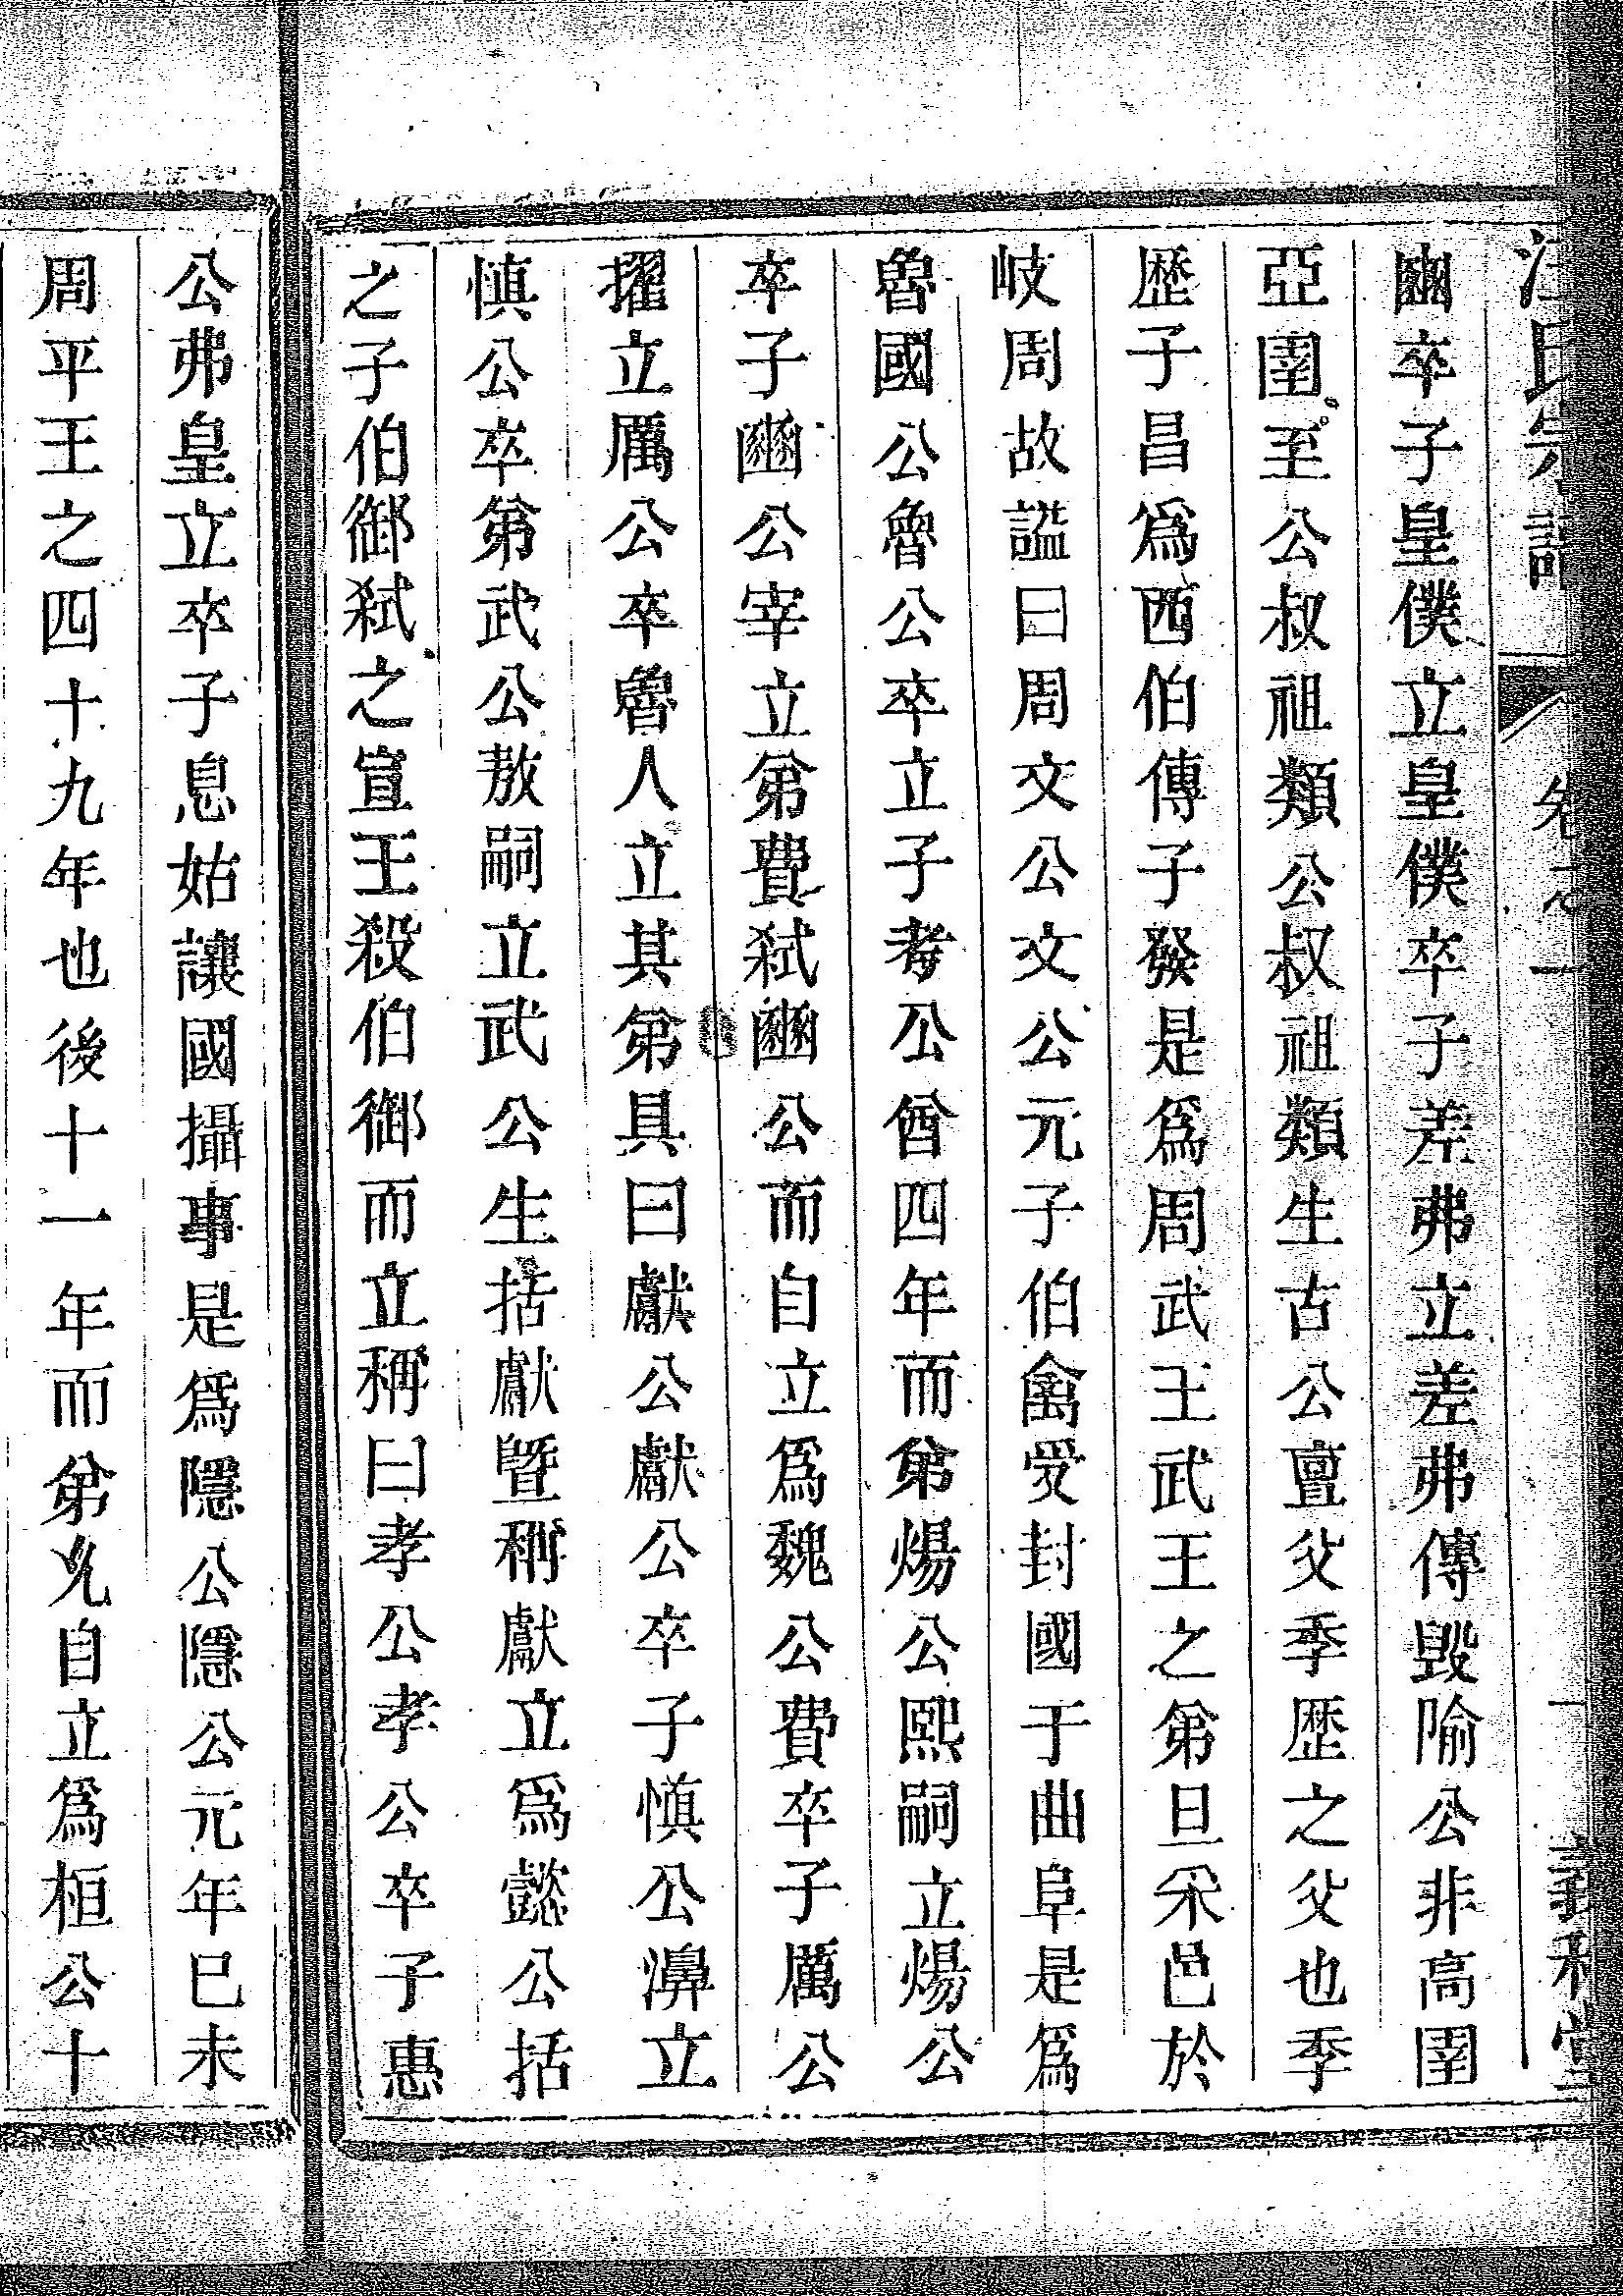 汪氏宗譜 先系一 一 義和堂
豳卒子皇僕立皇僕卒子差弗立差弗傳毀隃公非高圉
亞圉至公叔祖類公叔祖類生古公亶父季歷之父也季
歷子昌爲西伯傳子發是爲周武王武王之第旦采邑於
岐周故謚曰周文公文公元子伯禽受封國于曲阜是爲
魯國公魯公卒立子考公酋四年而第煬公熙嗣立煬公
卒子豳公宰立第費弑豳公而自立爲魏公費卒子厲公
擢立厲公卒魯人立其第具曰獻公獻公卒子慎公濞立
慎公卒第武公敖嗣立武公生括獻暨稱獻立爲懿公括
之子伯御弑之宣王殺伯御而立稱曰孝公孝公卒子惠
公弗皇立卒子息姑讓國攝事是爲隱公隱公元年巳未
周平王之四十九年也後十一年而第允自立爲桓公十